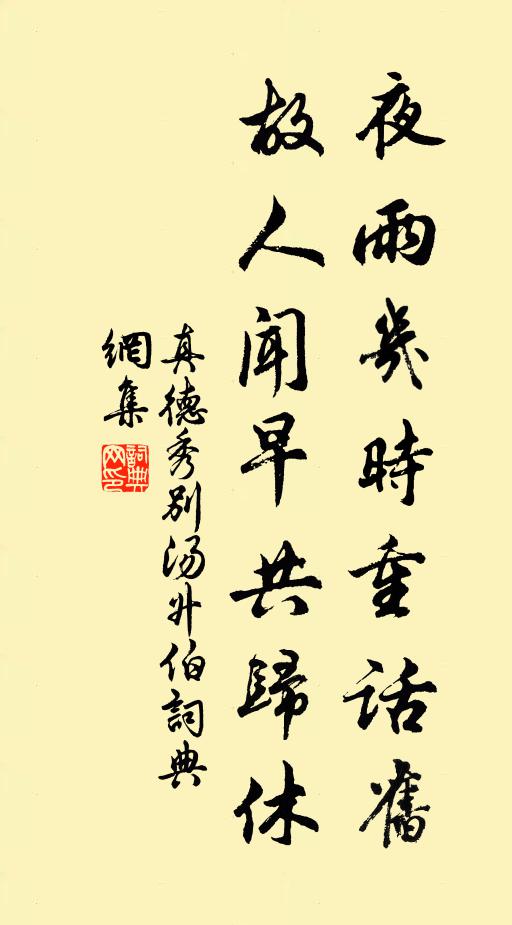 夜雨幾時重話舊
故人聞早共歸休
真德秀別湯升伯詞典
網集
詞典
网印